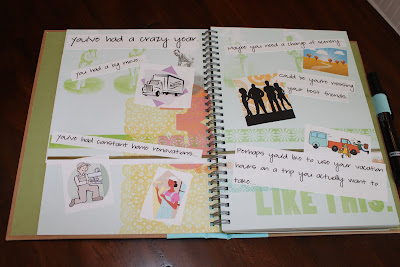 You've had a crazy year
you had a big move.
You've had constant home renovations.
Maybe you need a change of scenery
Could be you're missing
your best friends.
Perhaps you'd like to use your vacation
hours on a trip you actually want to
take.
LIKE THIS!